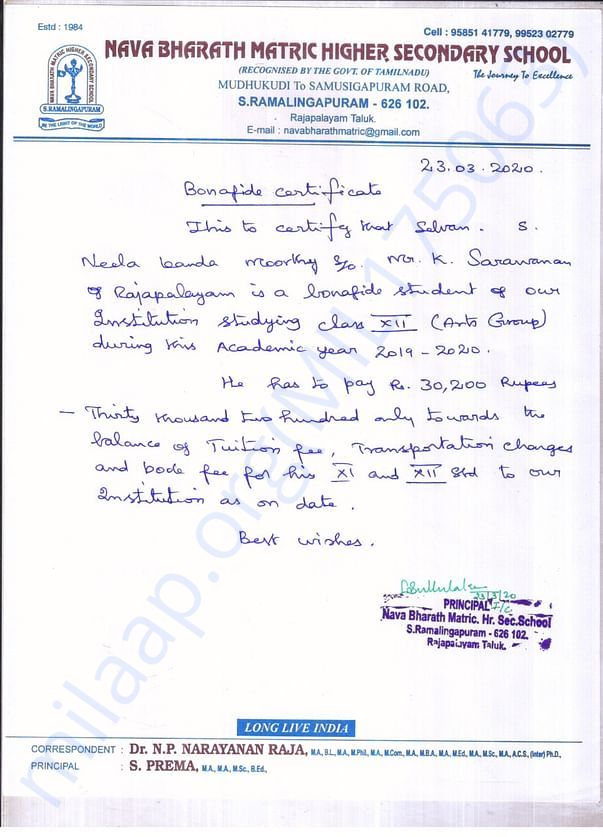 Estd : 1984
Cell : 95851 41779, 99523 02779
NAVA BHARATH MATRIC HIGHER SECONDARY SCHOOL
(RECOGNISED BY THE GOVT. OF TAMILNADU)
The Journey To Excellence
MUDHUKUDI To SAMUSIGAPURAM ROAD,
S.RAMALINGAPURAM - 626 102.
Rajapalayam Taluk.
E-mail : navabharathmatric@gmail.com
NAVA BHARATH MATRIC HIGHER SECONDARY SCHOOL
S.RAMALINGAPURAM
BE THE LIGHT OF THE WORLD
23.03.2020.
Bonafide certificate
This to certify that Selvan. S.
Neela kanda moorthy S/o. Mr. K. Sarawanan
of Rajapalayam is a bonafide student of our
Institution studying class XII (Arts Group)
during this Academic year 2019-2020.
He has to pay Rs. 30,200 Rupees
- Thirty thousand two hundred only towards the
balance of Tuition fee, Transportation charges
and book fee for his XI and XII Std to our
Institution as on date.
Best wishes.
23/3/20
PRINCIPAL I/C
Nava Bharath Matric. Hr. Sec.School
S.Ramalingapuram - 626 102.
Rajapalayam Taluk.
LONG LIVE INDIA
CORRESPONDENT : Dr. N.P. NARAYANAN RAJA, M.A., B.L., M.A., M.Phil., M.A., M.Com., M.A., M.B.A., M.A., M.Ed., M.A., M.Sc., M.A., A.C.S., (Inter) Ph.D.,
PRINCIPAL : S. PREMA, M.A., M.A., M.Sc., B.Ed.,